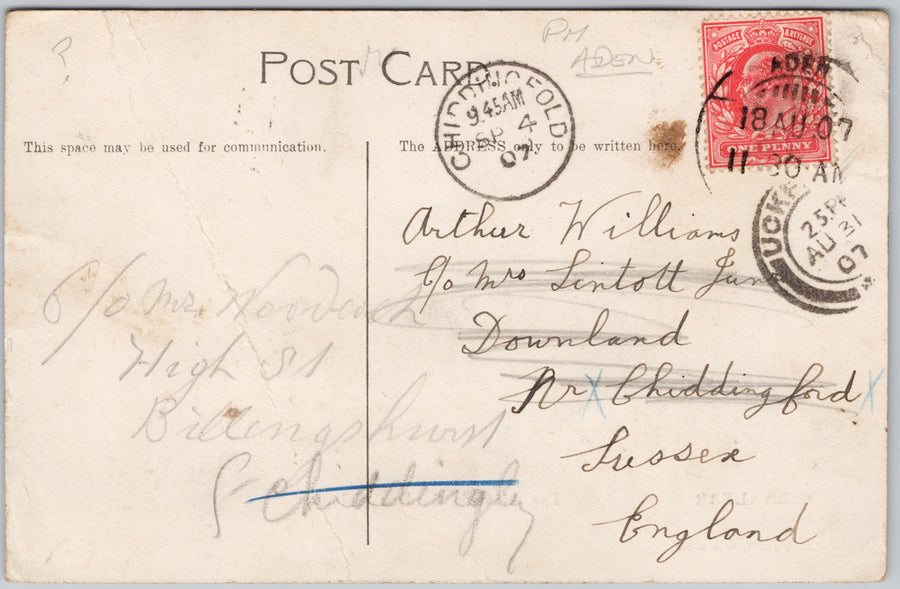 ?
PM
ADEN
POST CARD
This space may be used for communication.
The ADDRESS only to be written here.
POSTAGE & REVENUE
ONE PENNY
ADEN
18 AU 07
11 30 AM
CHIDDINGFOLD
9.45AM
SP 4
07
UCKF
2 5 PM
AU 31
07
Arthur Williams
c/o Mrs Lintott Junr
Downland
Nr Chiddingford
Sussex
England
c/o Mr Woodcock
High St
Billingshurst
Chiddingly